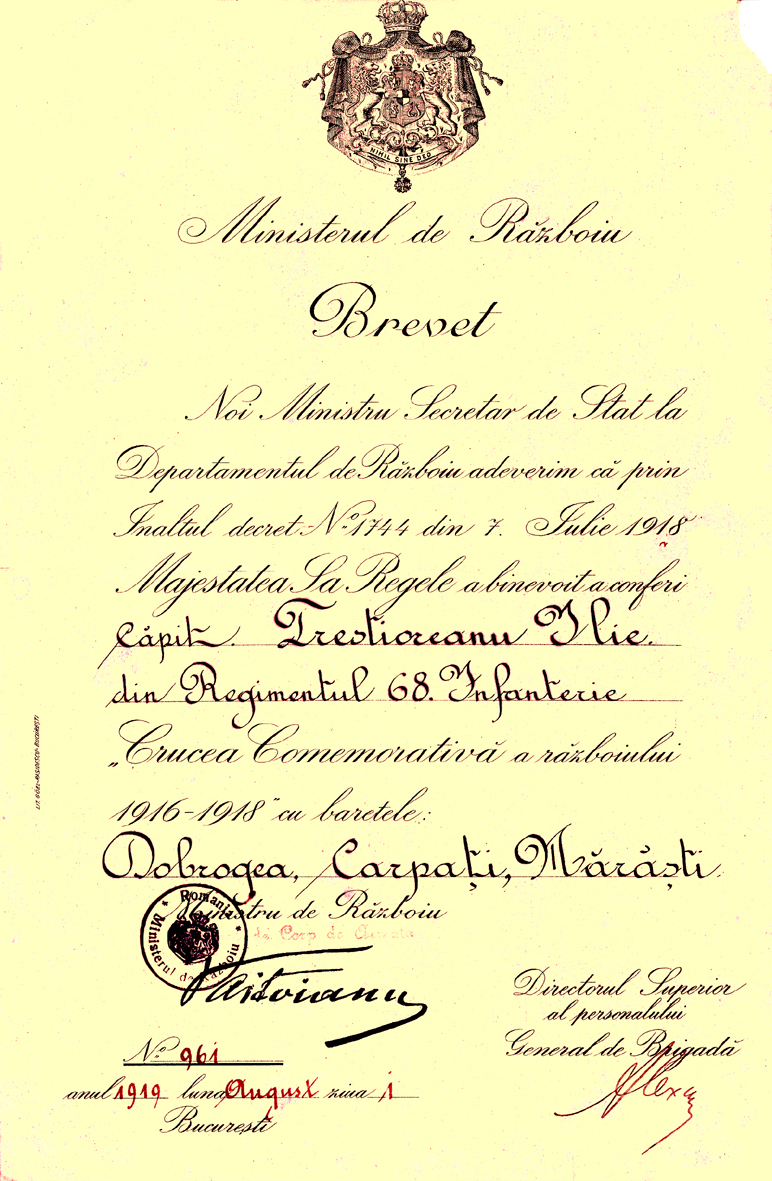 NIHIL SINE DEO
Ministerul de Războiu
Brevet
Noi Ministru Secretar de Stat la
Departamentul de Războiu adeverim că prin
Inaltul decret No 1744 din 7. Iulie 1918
Majestatea Sa Regele a binevoit a conferi
Căpit. Trestioreanu Ilie.
din Regimentul 68. Infanterie
„Crucea Comemorativă a războiului
1916-1918" cu baretele:
Dobrogea, Carpați, Mărăști.
Ministru de Războiu
Corp de Armată
România
Ministerul de Războiu
Văitoianu
Directorul Superior
al personalului
General de Brigadă
No 961
anul 1919 luna August ziua 1
București